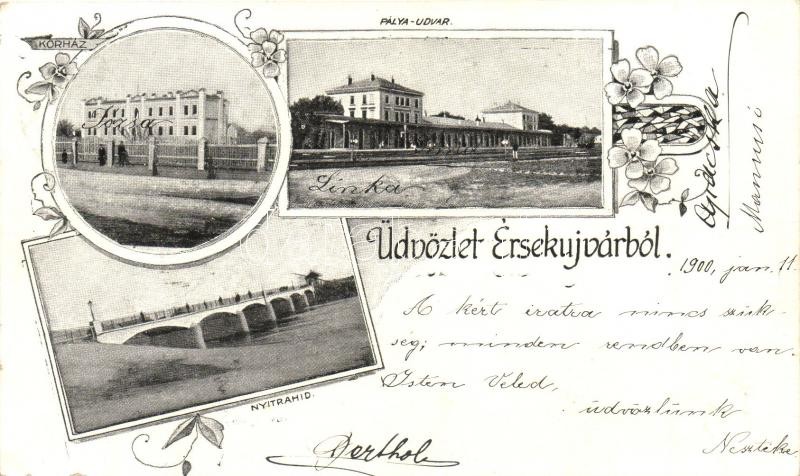 PÁLYA-UDVAR.
KÓRHÁZ
Linka
Mannusi
Üdvözlet Érsekujvárból.
1900, jan. 11.
A kért iratra nincs szük-
ség; minden rendben van.
Isten Veled,
üdvözlünk
NYITRAHID.
Berthol